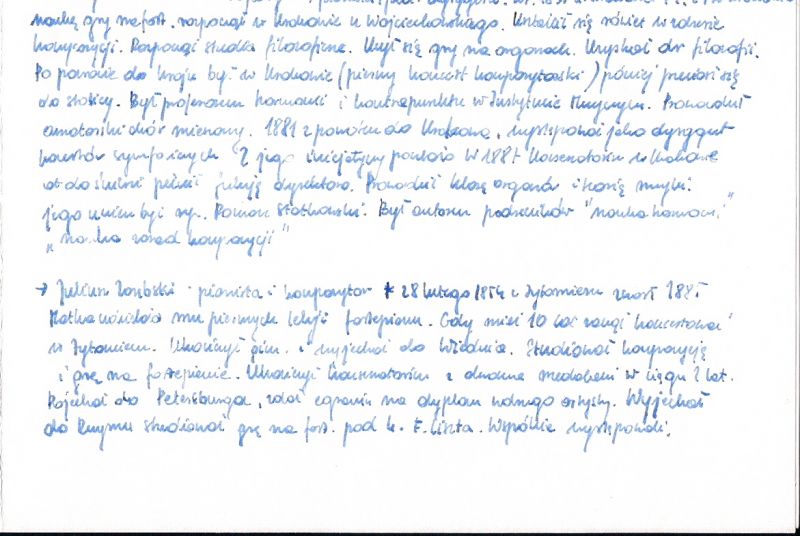 naukę gry na fort. rozpoczął w Krakowie u Wojciechowskiego. Kształcił się również w zakresie
kompozycji. Rozpoczął studia filozoficzne. Uczył się gry na organach. Uzyskał dr filozofii.
Po powrocie do kraju był w Krakowie (pierwszy koncert kompozytorski) później przeniósł się
do stolicy. Był profesorem harmonii i kontrapunktu w Instytucie Muzycznym. Prowadził
amatorski chór mieszany. 1881 z powrotem do Krakowa, występował jako dyrygent
koncertów symfonicznych. Z jego inicjatywy powstało w 1887 Konserwatorium w Krakowie
od do śmierci pełnił funkcję dyrektora. Prowadził klasę organów i teorię muzyki
jego uczniem był np. Roman Statkowski. Był autorem podręczników "nauka harmonii"
"nauka zasad kompozycji"
→ Juliusz Zarębski - pianista i kompozytor * 28 lutego 1854 w Żytomierzu zmarł 1885
Matka udzielała mu pierwszych lekcji fortepianu. Gdy miał 10 lat zaczął koncertować
w Żytomierzu. Ukończył gim. i wyjechał do Wiednia. Studiował kompozycję
i grę na fortepianie. Ukończył Konserwatorium z dwoma medalami w ciągu 2 lat.
Pojechał do Petersburga, zdał egzamin na dyplom wolnego artysty. Wyjechał
do Rzymu studiował grę na fort. pod k. F. Liszta. Wspólnie występowali.